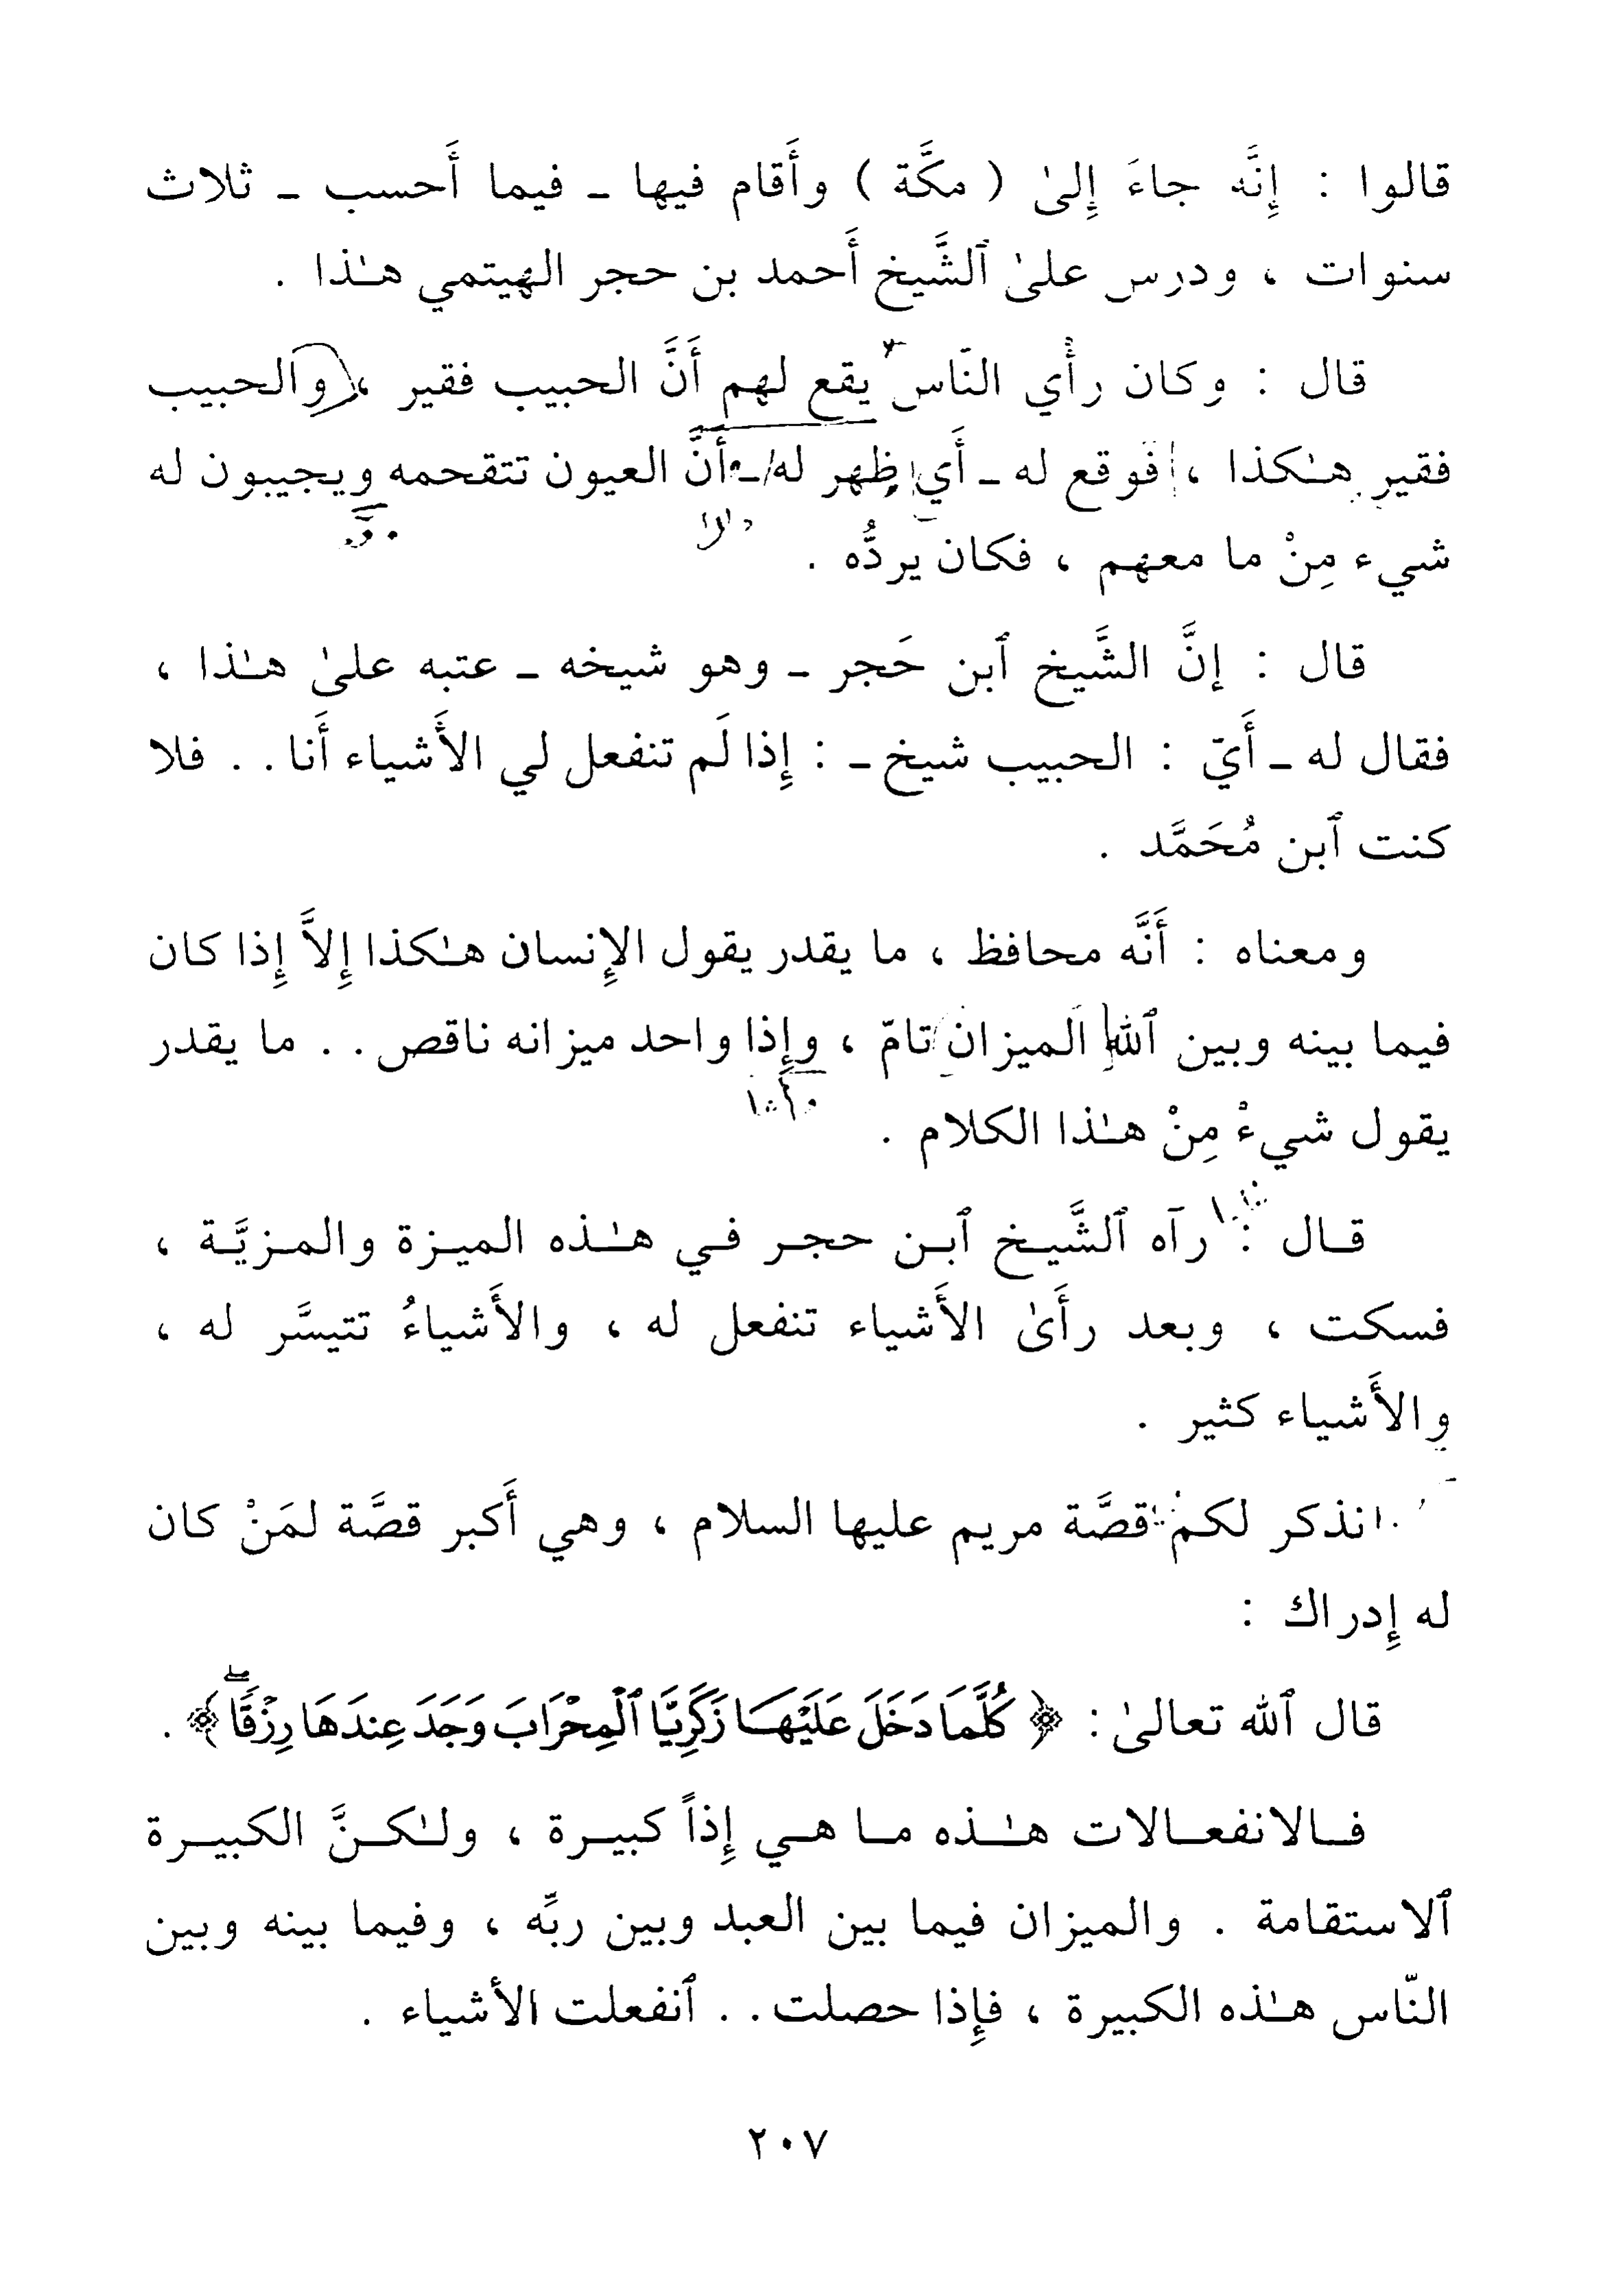 قالوا : إِنَّه جاءَ إِلىٰ ( مكَّة ) وأَقام فيها ـ فيما أَحسب ـ ثلاث
سنوات ، ودرس علىٰ ٱلشَّيخ أَحمد بن حجر الهيتمي هـٰذا .
قال : وكان رأْي النّاس يقع لهم أَنَّ الحبيب فقير ، والحبيب
فقير هـٰكذا ، فوقع له ـ أَي ظهر له ـ أَنَّ العيون تتقحمه ويجيبون له
شيء مِنْ ما معهم ، فكان يردُّه .
قال : إنَّ الشَّيخ ٱبن حَجر ـ وهو شيخه ـ عتبه علىٰ هـٰذا ،
فقال له ـ أَيّ : الحبيب شيخ ـ : إِذا لَم تنفعل لي الأَشياء أَنا . . فلا
كنت ٱبن مُحَمَّد .
ومعناه : أَنَّه محافظ ، ما يقدر يقول الإِنسان هـٰكذا إِلاَّ إِذا كان
فيما بينه وبين ٱلله الميزان تامّ ، وإِذا واحد ميزانه ناقص . . ما يقدر
يقول شيءْ مِنْ هـٰذا الكلام .
قـال : رآه ٱلشَّيـخ ٱبـن حجـر فـي هـٰـذه الميـزة والمـزيَّـة ،
فسكت ، وبعد رأَىٰ الأَشياء تنفعل له ، والأَشياءُ تتيسَّر له ،
والأَشياء كثير .
نذكر لكم قصَّة مريم عليها السلام ، وهي أَكبر قصَّة لمَنْ كان
له إِدراك :
قال ٱلله تعالىٰ : ﴿ كُلَّمَا دَخَلَ عَلَيْهَا زَكَرِيَّا ٱلْمِحْرَابَ وَجَدَ عِندَهَا رِزْقًاۖ ﴾ .
فـالانفعـالات هـٰـذه مـا هـي إِذاً كبيـرة ، ولـٰكـنَّ الكبيـرة
ٱلاستقامة . والميزان فيما بين العبد وبين ربِّه ، وفيما بينه وبين
النّاس هـٰذه الكبيرة ، فإِذا حصلت . . ٱنفعلت الأَشياء .
٢٠٧